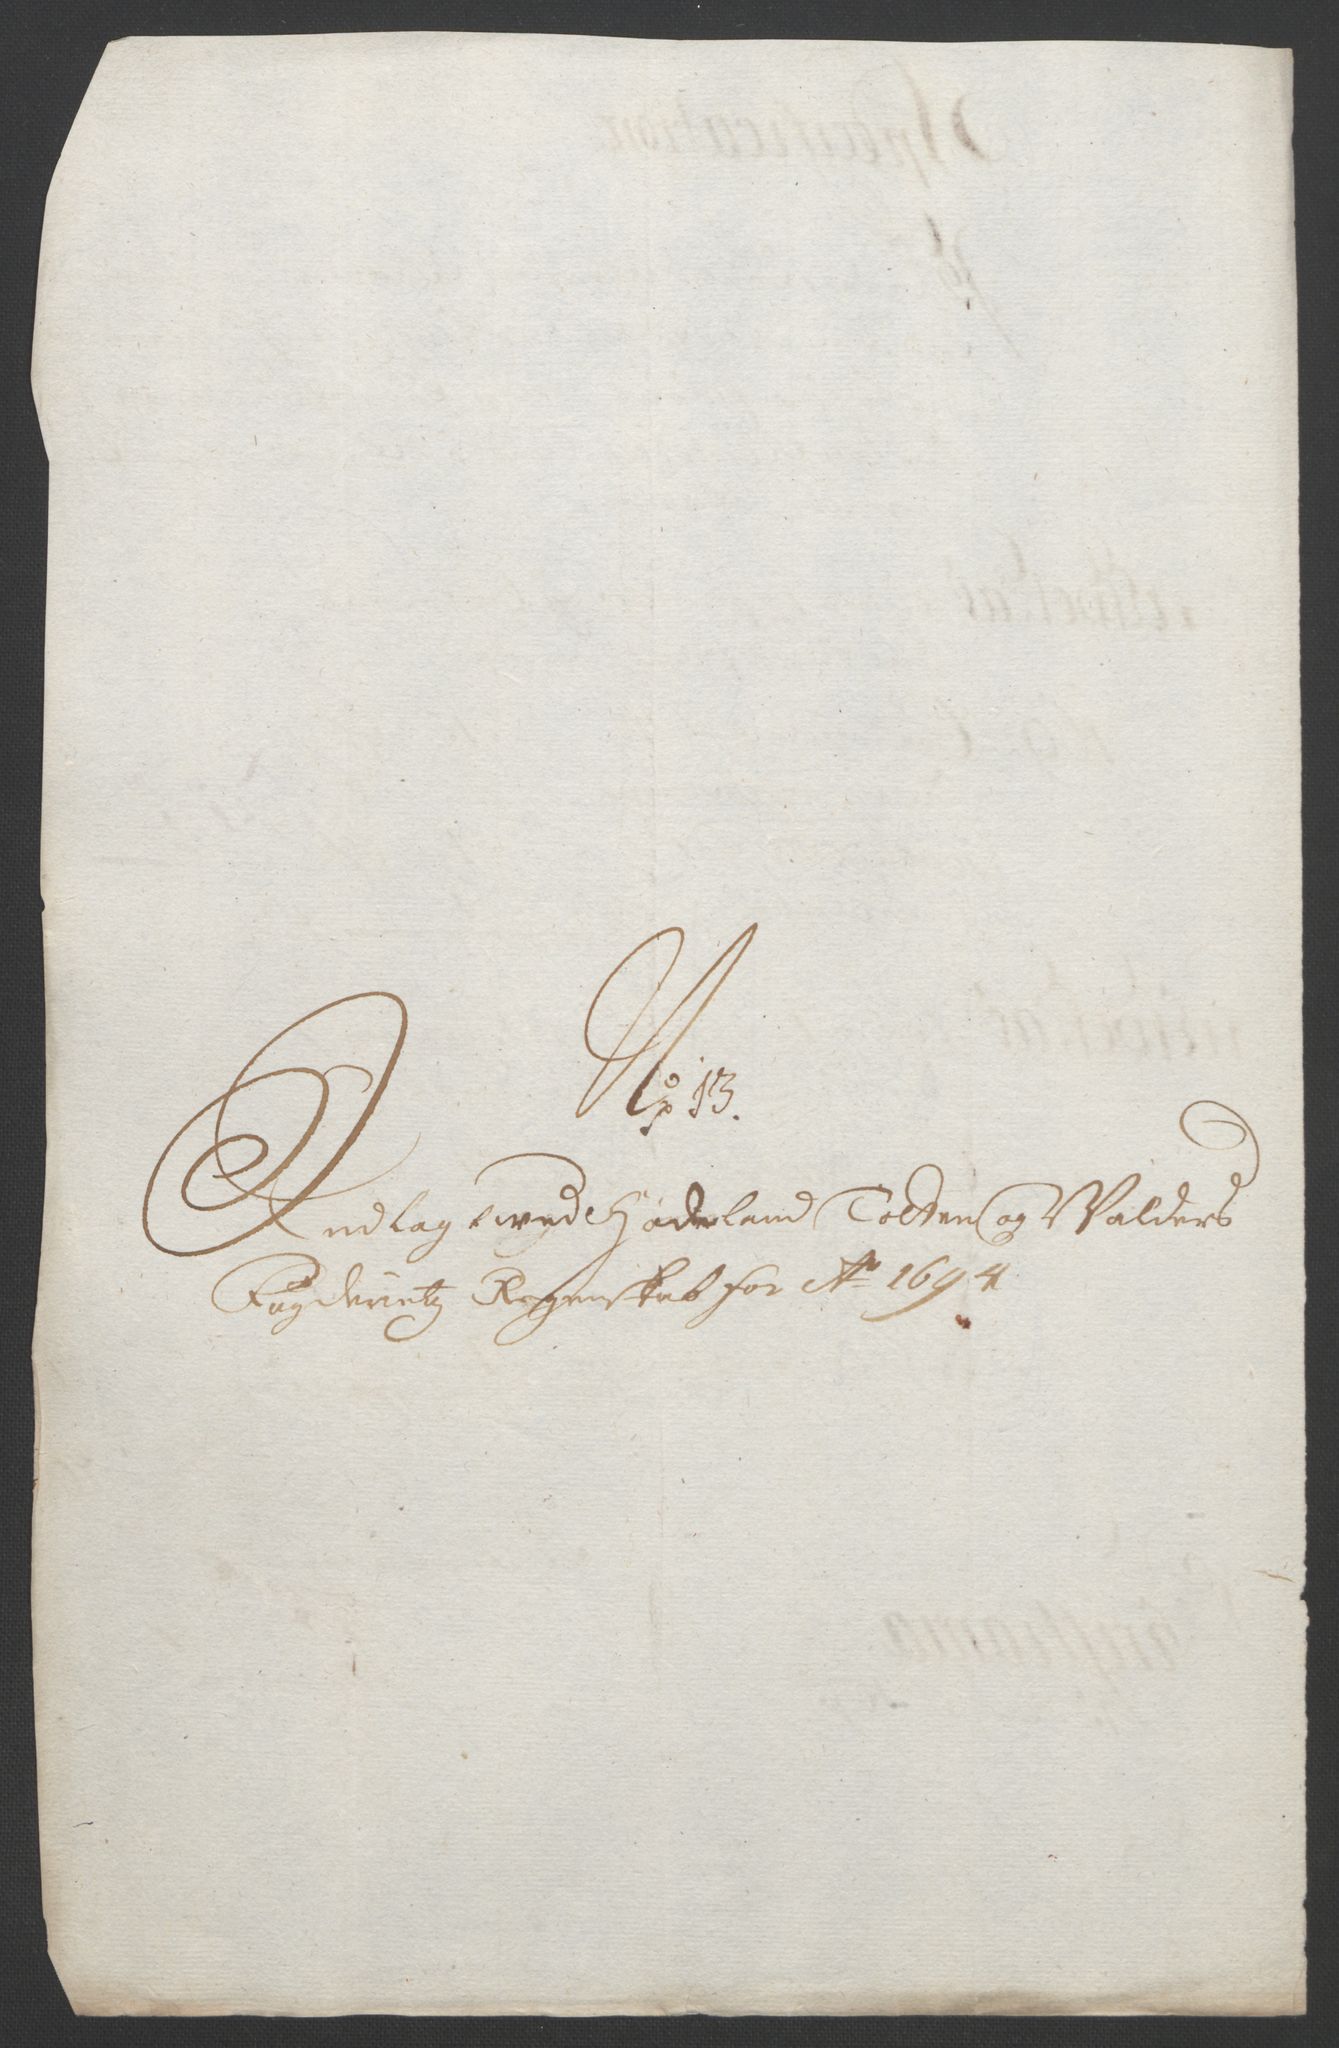 No 13.
Indlag wed Hadeland Totten og Walders
Fugderietz Regenskab for Ao 1694